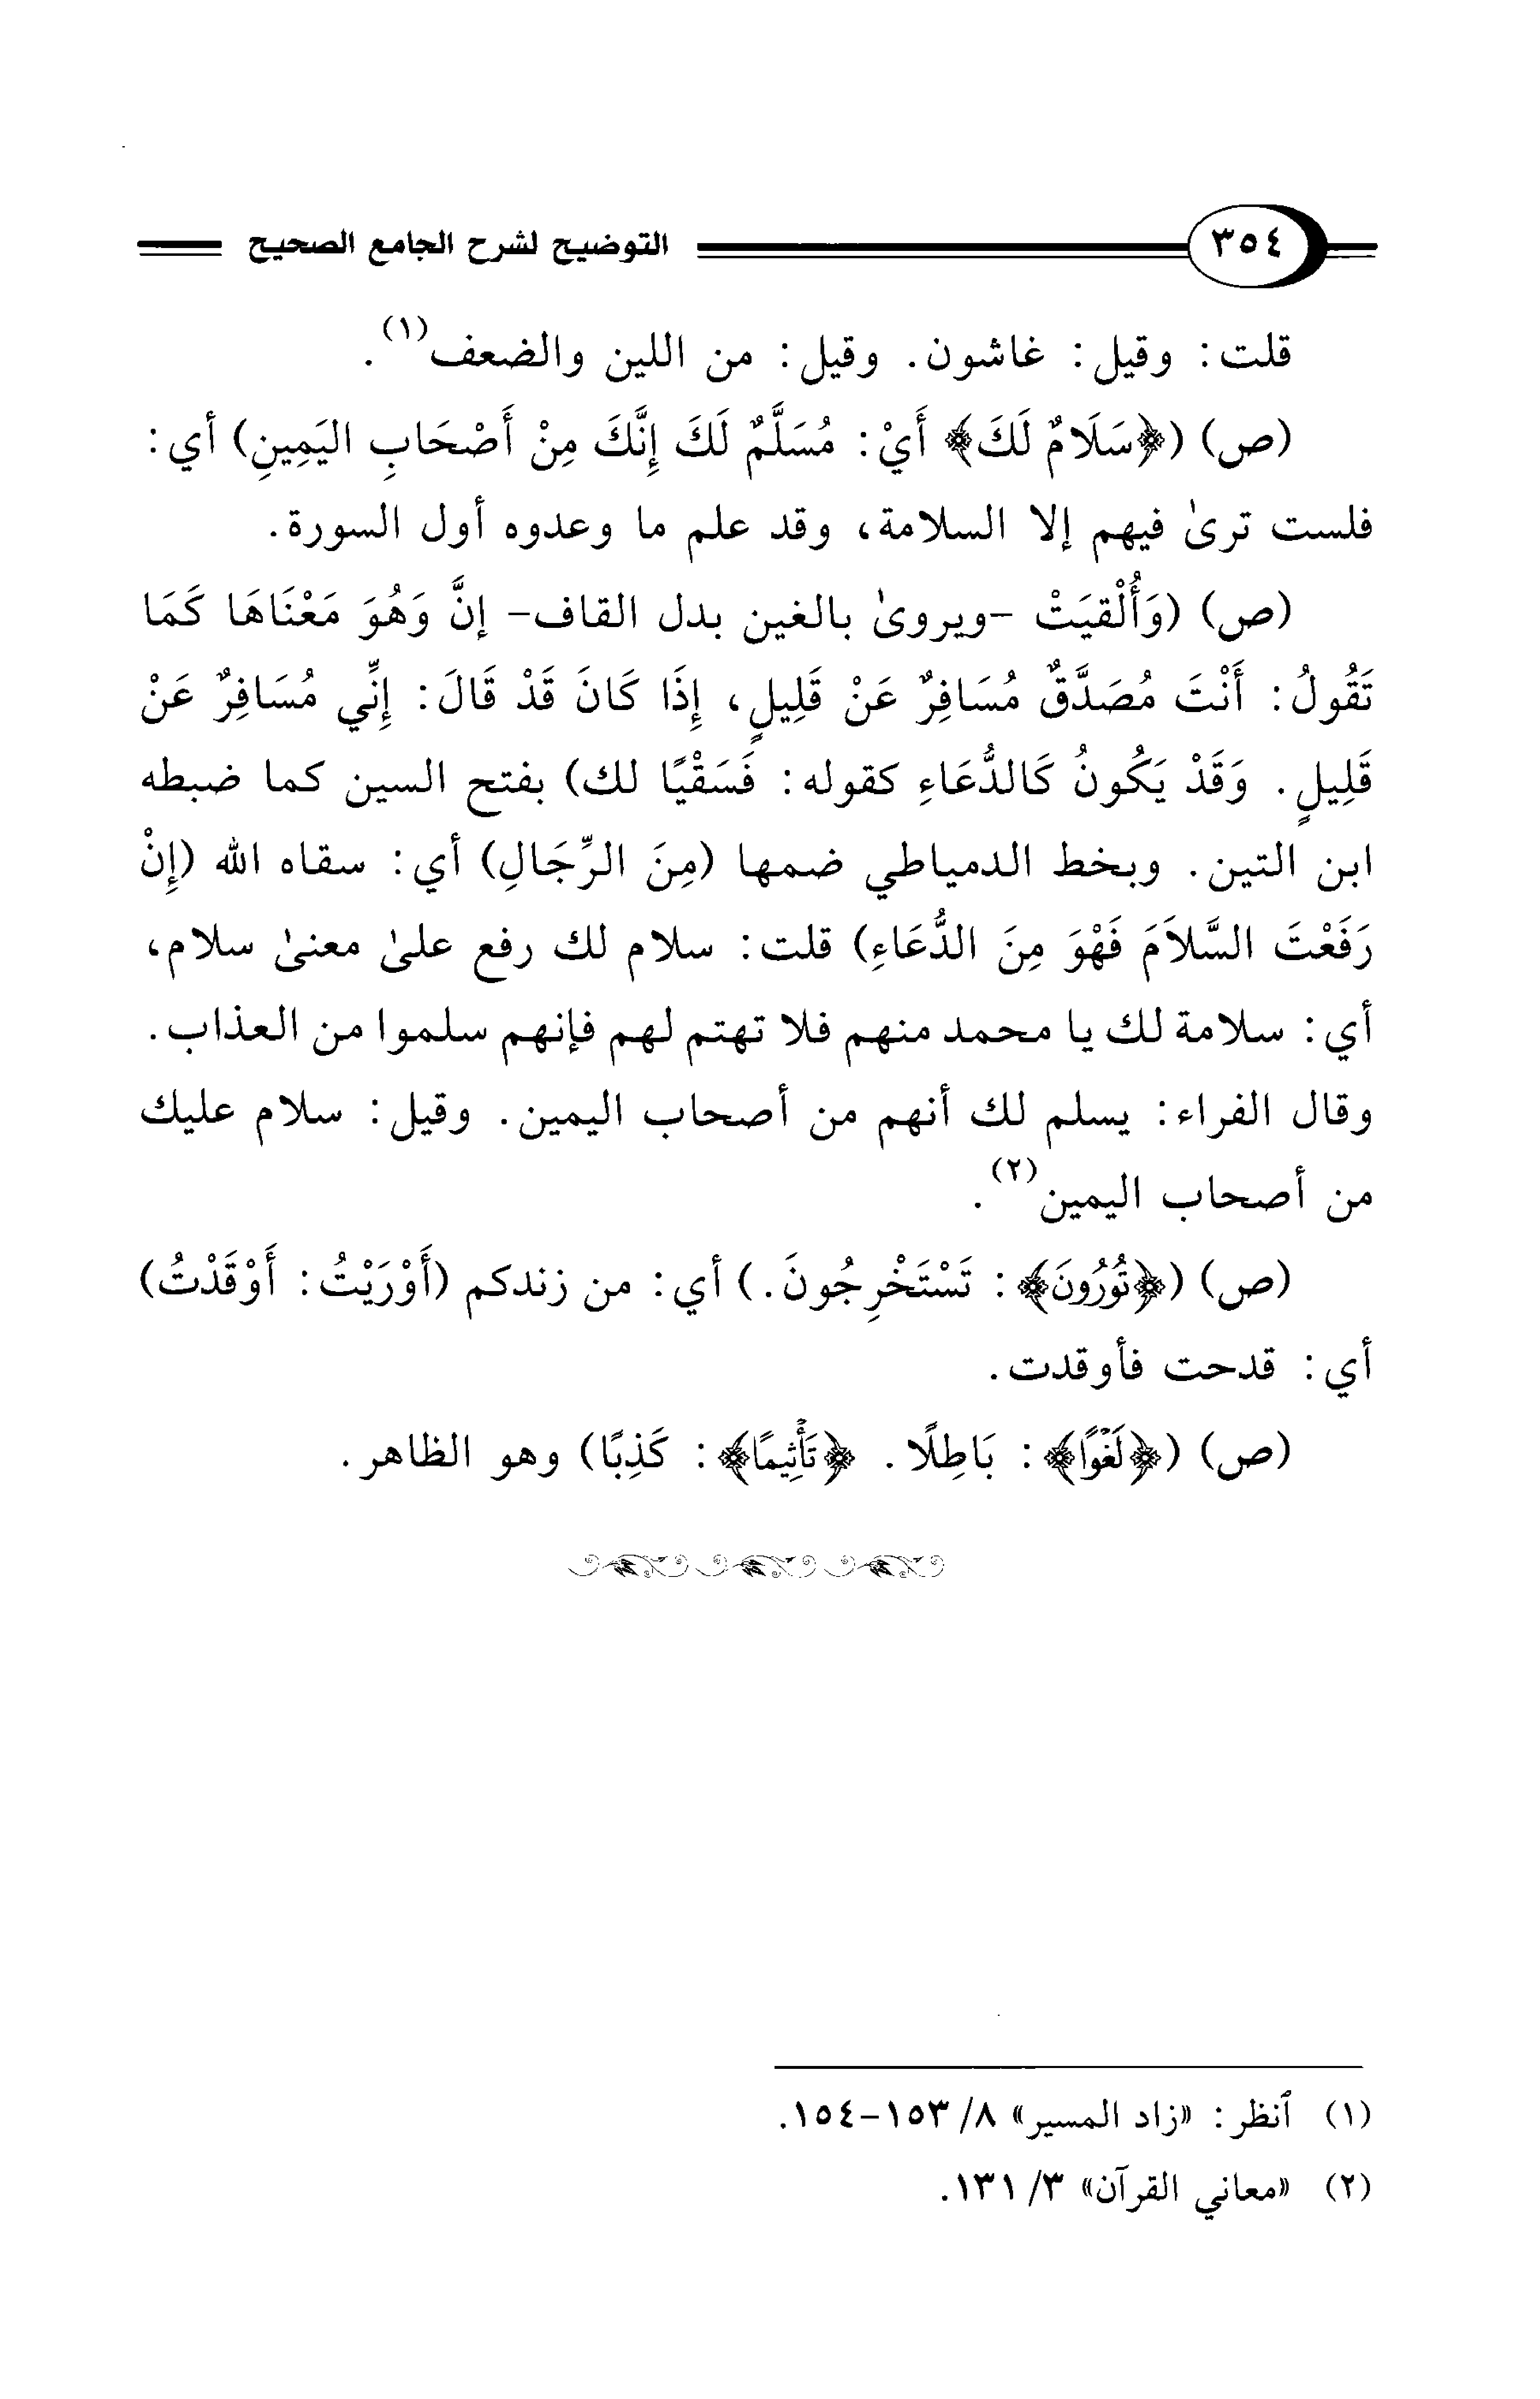 ٣٥٤ التوضيح لشرح الجامع الصحيح
قلت: وقيل: غاشون. وقيل: من اللين والضعف(١).
(ص) (﴿سَلَامٌ لَكَ﴾ أَيْ: مُسَلَّمٌ لَكَ إِنَّكَ مِنْ أَصْحَابِ اليَمِينِ) أي:
فلست ترىٰ فيهم إلا السلامة، وقد علم ما وعدوه أول السورة.
(ص) (وَأُلْقيَتْ -ويروىٰ بالغين بدل القاف- إنَّ وَهُوَ مَعْنَاهَا كَمَا
تَقُولُ: أَنْتَ مُصَدَّقٌ مُسَافِرٌ عَنْ قَلِيلٍ، إِذَا كَانَ قَدْ قَالَ: إِنِّي مُسَافِرٌ عَنْ
قَلِيلٍ. وَقَدْ يَكُونُ كَالدُّعَاءِ كقوله: فَسَقْيًا لك) بفتح السين كما ضبطه
ابن التين. وبخط الدمياطي ضمها (مِنَ الرِّجَالِ) أي: سقاه الله (إِنْ
رَفَعْتَ السَّلاَمَ فَهْوَ مِنَ الدُّعَاءِ) قلت: سلام لك رفع علىٰ معنىٰ سلام،
أي: سلامة لك يا محمد منهم فلا تهتم لهم فإنهم سلموا من العذاب.
وقال الفراء: يسلم لك أنهم من أصحاب اليمين. وقيل: سلام عليك
من أصحاب اليمين(٢).
(ص) (﴿تُوُرُونَ﴾: تَسْتَخْرِجُونَ.) أي: من زندكم (أَوْرَيْتُ: أَوْقَدْتُ)
أي: قدحت فأوقدت.
(ص) (﴿لَغْوًا﴾: بَاطِلًا. ﴿تَأْثِيمًا﴾: كَذِبًا) وهو الظاهر.
(١) ٱنظر: «زاد المسير» ٨/ ١٥٣-١٥٤.
(٢) «معاني القرآن» ٣/ ١٣١.